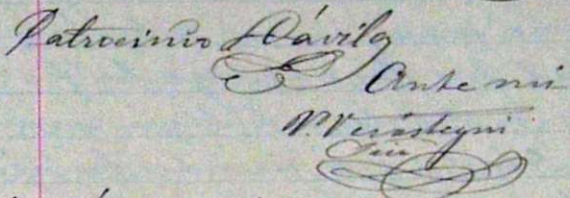 Patrocinio Dávila
Ante mi
V. Verástegui